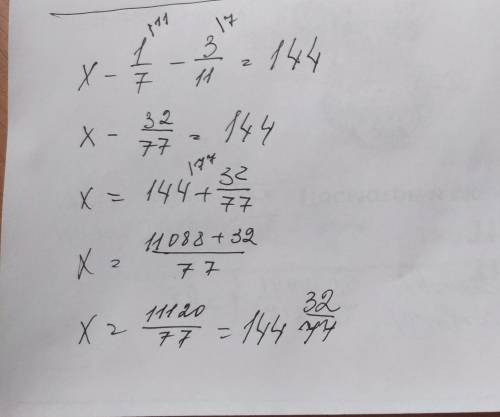 x - 1/7 \11 - 3/11 \7 = 144
x - 32/77 = 144
x = 144 \77 + 32/77
x = 11088 + 32 / 77
x = 11120/77 = 144 32/77